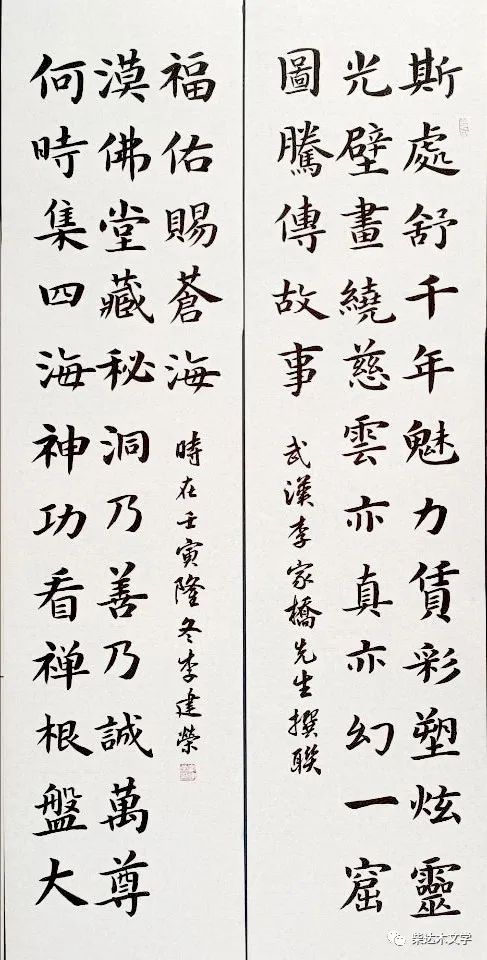 斯處舒千年魅力賃彩塑炫靈
光壁畫繞慈雲亦真亦幻一窟
圖騰傳故事
武漢李家橋先生撰联
何時集四海神功看禅根盤大
漠佛堂藏秘洞乃善乃誠萬尊
福佑賜蒼海
時在壬寅隆冬李建榮
柴达木文学